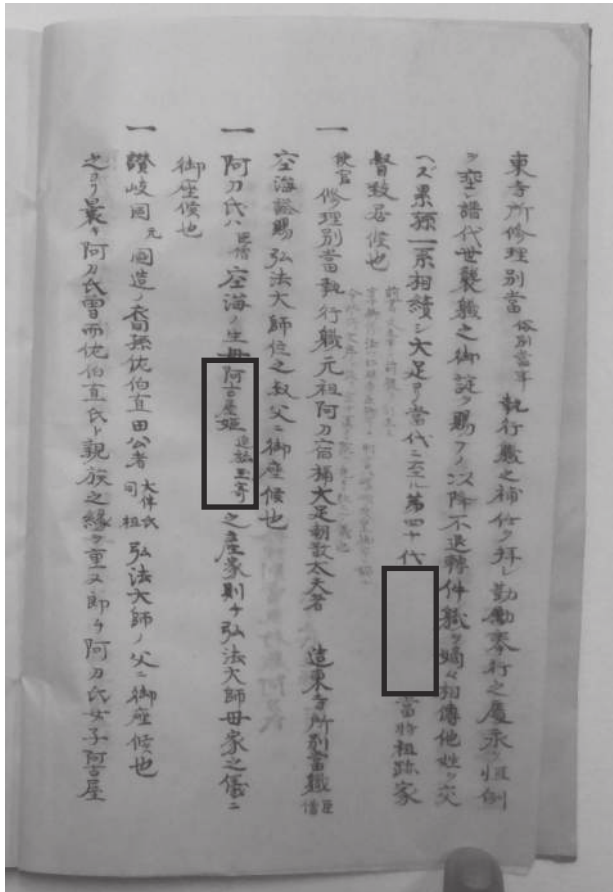 東寺所修理別當 俗別當年 執行職之補任ヲ拝シ勤勵奉行之慶永ク恒例
ヲ垂レ譜代世襲職之御諚ヲ賜フノ以降不退轉件職ヲ嫡々相傳他姓ヲ交
ヘズ累孫一系相續シ大足ヨリ當代ニ至ル第四十代 當將祖跡家
督致居候也
一 使官 修理別當執行職元祖阿刀宿禰大足朝散太夫者 造東寺所別當職 臣僧
空海諡賜弘法大師位之叔父ニ御座候也
一 阿刀氏ハ 臣僧 空海ノ生母阿古屋姫 追諡玉寄 之産家則チ弘法大師母家之儀ニ
御座候也
一 讃岐国 元 国造ノ裔孫佐伯直田公者 大伴氏 司祖 弘法大師ノ父ニ御座候也
之ヨリ曩キ阿刀氏曽而佐伯直氏ト親族之縁ヲ重又即チ阿刀氏女子阿古屋